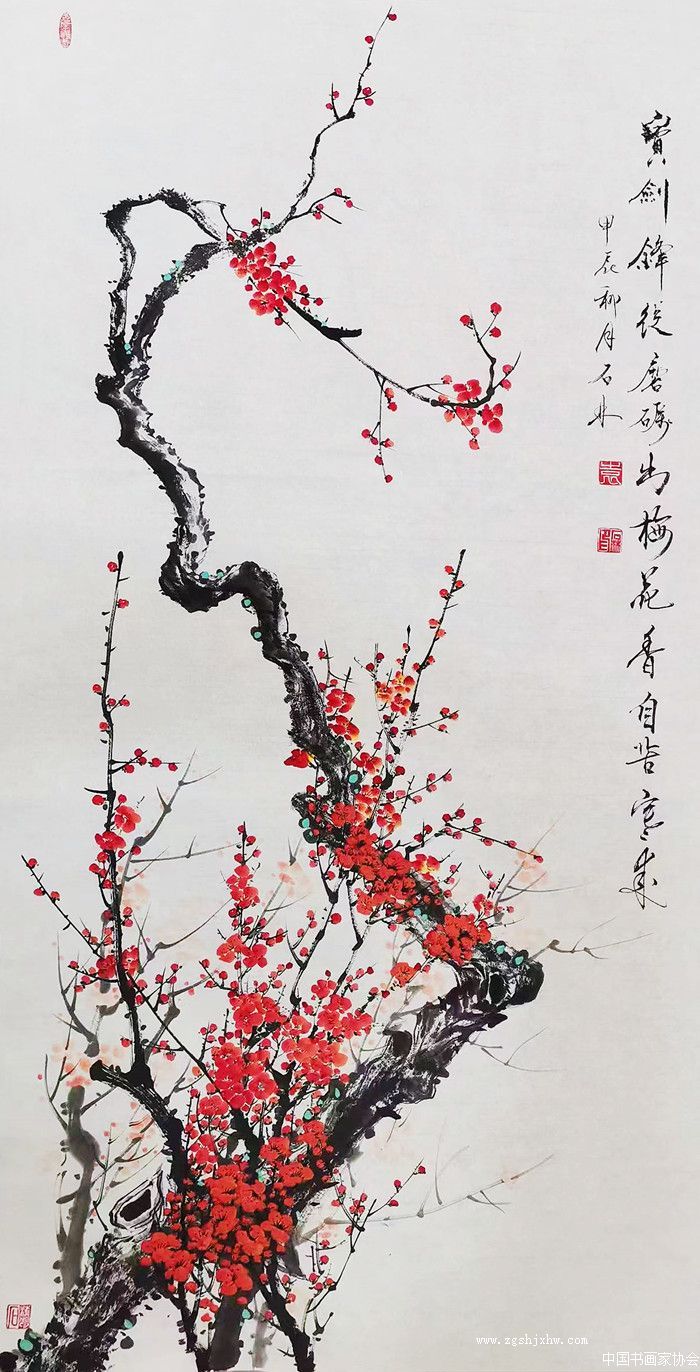 寳劍鋒從磨礪出梅花香自苦寒來
甲辰柳月石林
www.zgshjxhw.com
中国书画家协会